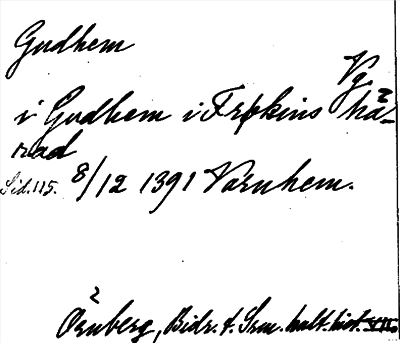 Gudhem
Vg.
i Gudhem i Frøkins hä-
rad
Sid. 115. 8/12 1391 Varnhem.
Ørnberg, Bidr. t. Sven. kult. hist. VII.